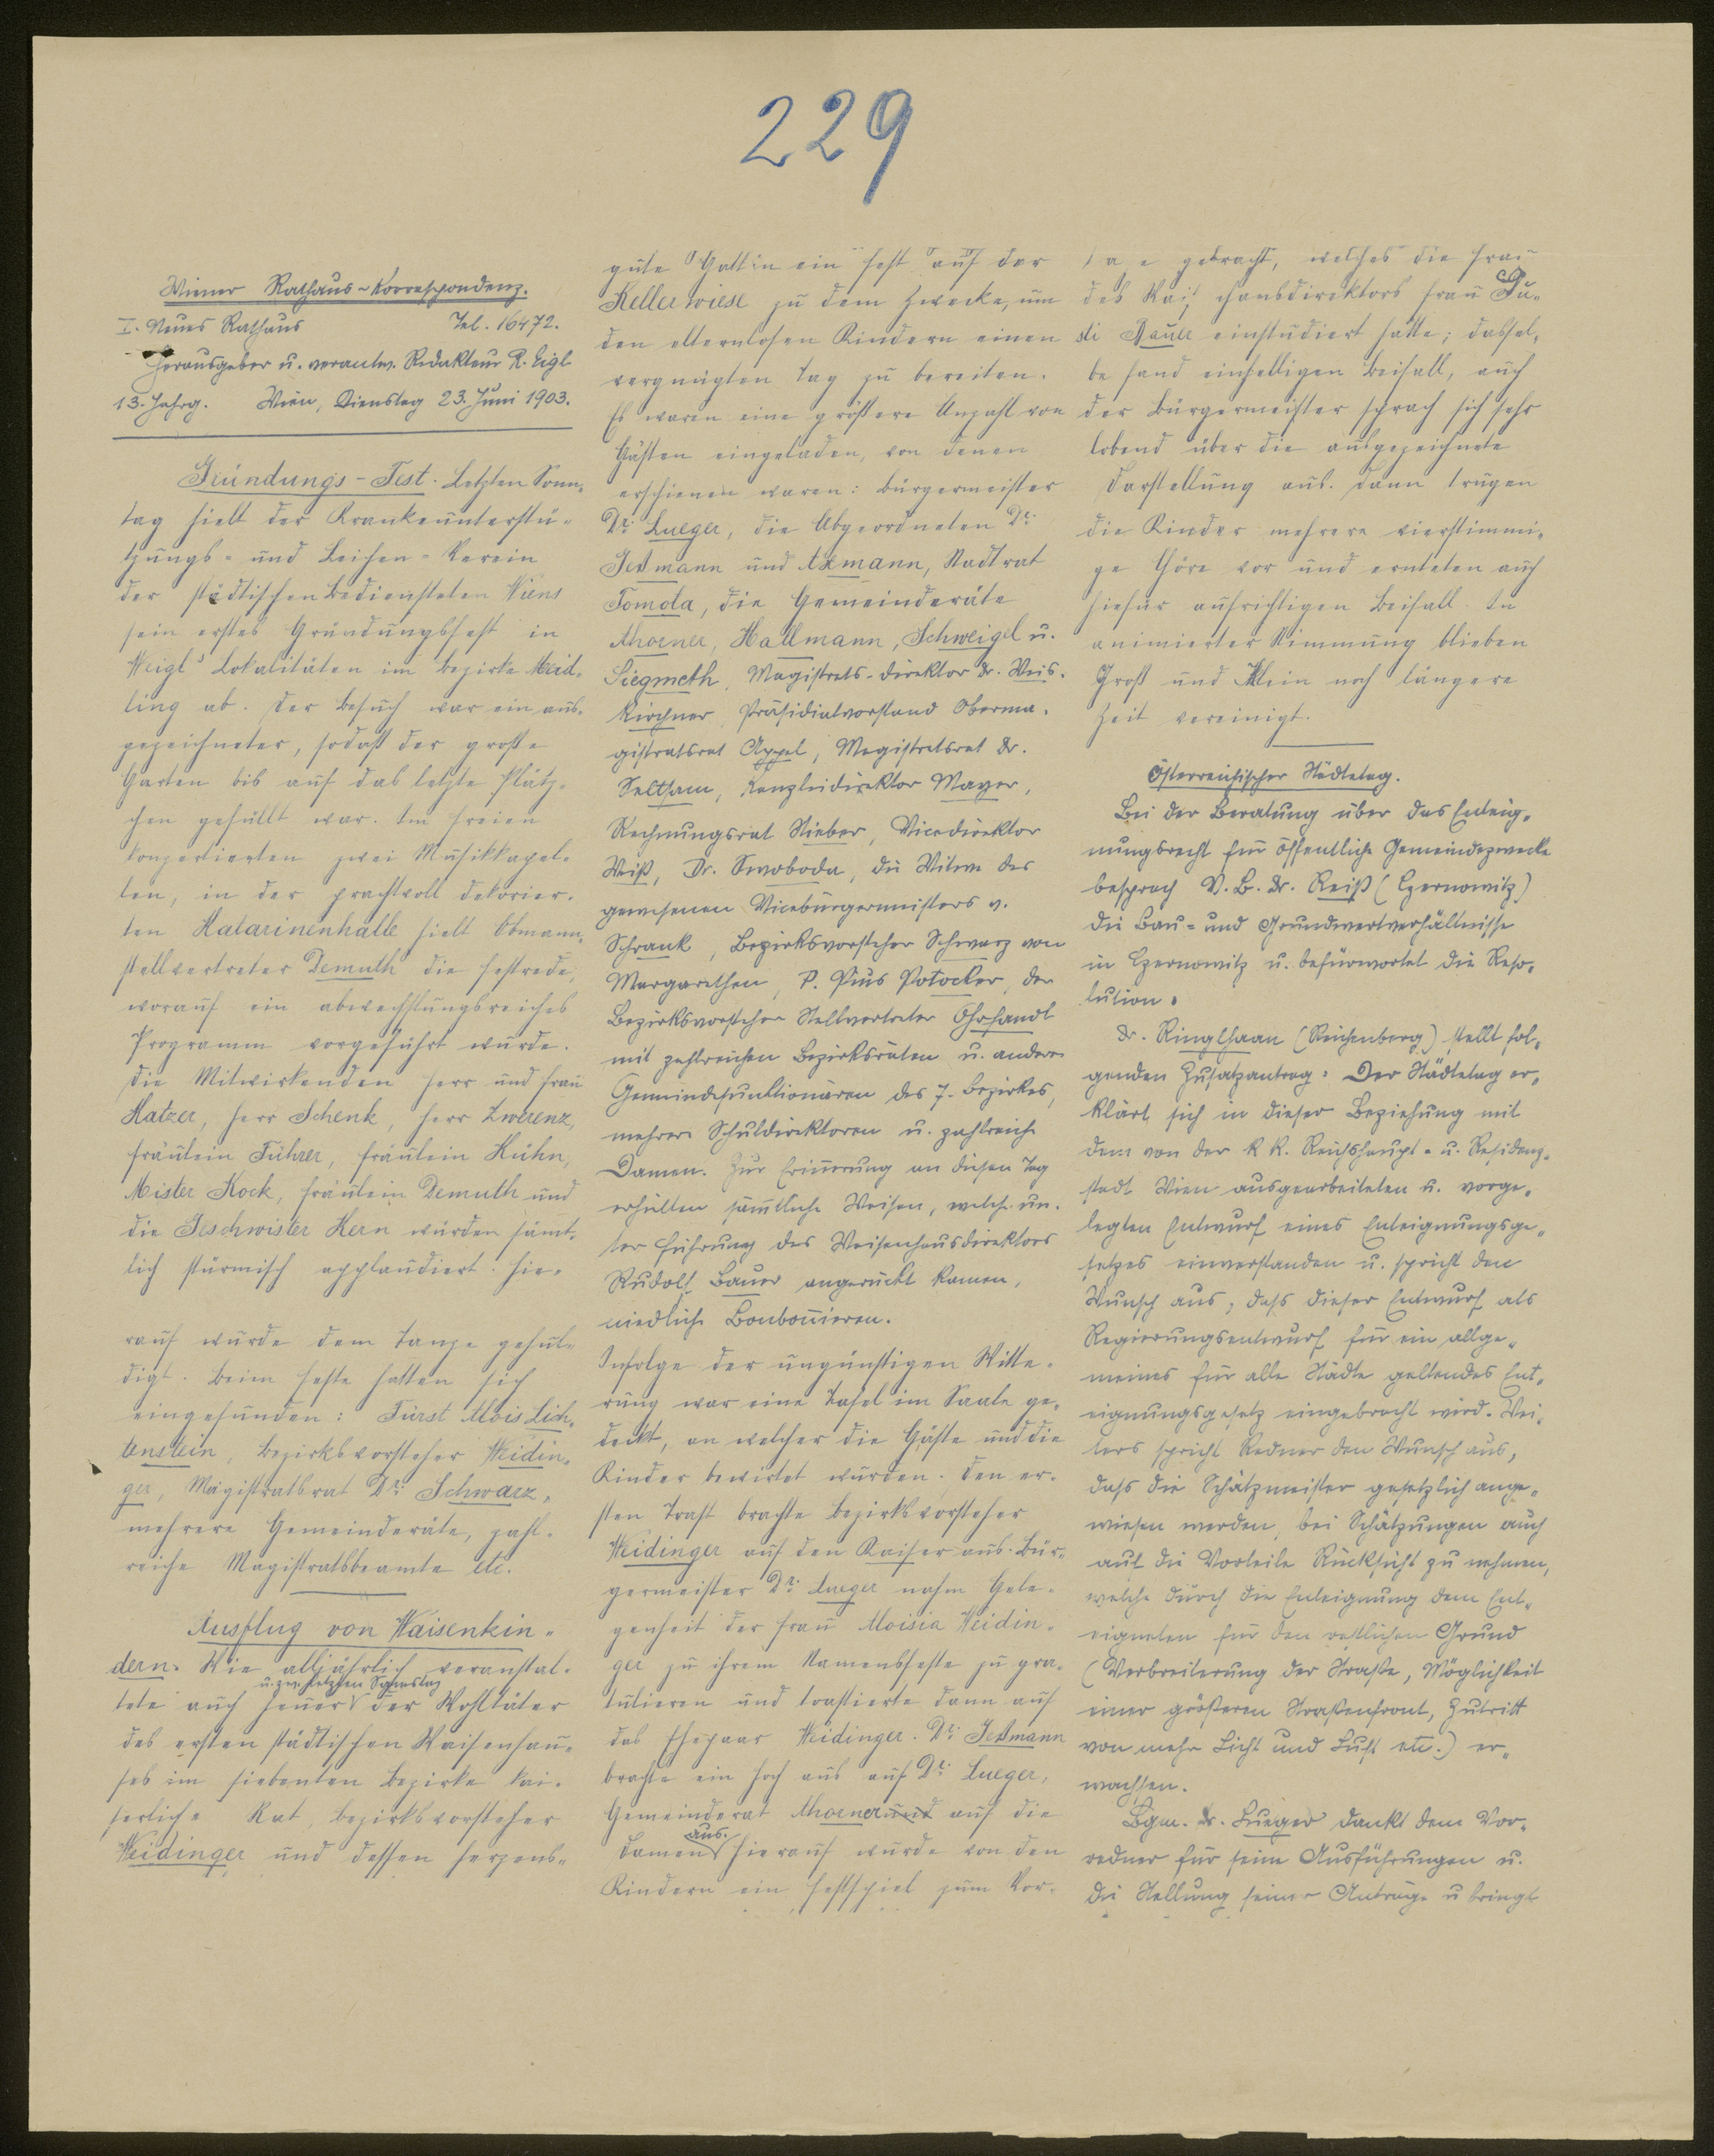 229
Wiener Rathaus-Korrespondenz.
I. Neues Rathaus Tel. 16472.
Herausgeber u. verantw. Redakteur R. Eigl
13. Jahrg. Wien, Dienstag 23. Juni 1903.
Gründungs-Fest. Letzten Sonn-
tag hielt der Krankenunterstü-
tzungs- und Leichen-Verein
der städtischen Bediensteten Wiens
sein erstes Gründungsfest in
Weigl's Lokalitäten im Bezirke Meid-
ling ab. Der Besuch war ein aus-
gezeichneter, sodaß der große
Garten bis auf das letzte Plätz-
chen gefüllt war. Im Freien
konzertierten zwei Musikkapel-
len, in der prachtvoll dekorier-
ten Katarinenhalle hielt Obmann-
stellvertreter Demuth die Festrede,
worauf ein abwechslungsreiches
Programm vorgeführt wurde.
Die Mitwirkenden Herr und Frau
Matzer, Herr Schenk, Herr Zwerenz,
Fräulein Führer, Fräulein Kühn,
Mister Kock, Fräulein Demuth und
die Geschwister Kern wurden sämt-
lich stürmisch applaudiert. Hie-
rauf wurde dem Tanze gehul-
digt. Beim Feste hatten sich
eingefunden: Fürst Alois Lich-
tenstein, Bezirksvorsteher Weidin-
ger, Magistratsrat Dr. Schwarz,
mehrere Gemeinderäte, zahl-
reiche Magistratsbeamte etc.
Ausflug von Waisenkin-
dern. Wie alljährlich veranstal-
u. zw. letzten Samstag
tete auch heuer der Wohltäter
des ersten städtischen Waisenhau-
ses im siebenten Bezirke kai-
serliche Rat, Bezirksvorsteher
Weidinger und dessen herzens-
gute Gattin ein Fest auf der
Kellerwiese zu dem Zwecke, um
den elternlosen Kindern einen
vergnügten Tag zu bereiten.
Es waren eine größere Anzahl von
Gästen eingeladen, von denen
erschienen waren: Bürgermeister
Dr. Lueger, die Abgeordneten Dr.
Geßmann und Axmann, Stadtrat
Tomola, die Gemeinderäte
Ahorner, Hallmann, Schweigel u.
Siegmeth, Magistrats-Direktor Dr. Weis-
kirchner, Präsidialvorstand Oberma-
gistratsrat Appel, Magistratsrat Dr.
Seltsam, Kanzleidirektor Mayer,
Rechnungsrat Stieber, Vicedirektor
Weiß, Dr. Swoboda, die Witwe des
gewesenen Vicebürgermeisters v.
Schrank, Bezirksvorsteher Schwarz von
Margarethen, P. Pius Potocker, der
Bezirksvorsteher Stellvertreter Ohrfandl
mit zahlreichen Bezirksräten u. andere
Gemeindefunktionären des 7. Bezirkes,
mehrere Schuldirektoren u. zahlreiche
Damen. Zur Erinnerung an diesen Tag
erhielten sämtliche Waisen, welche un-
ter Führung des Waisenhausdirektors
Rudolf Bauer angerückt kamen,
niedliche Bonbonieren.
Infolge der ungünstigen Witte-
rung war eine Tafel im Saale ge-
deckt, an welcher die Gäste und die
Kinder bewirtet wurden. Den er-
sten Toast brachte Bezirksvorsteher
Weidinger auf den Kaiser aus. Bür-
germeister Dr. Lueger nahm Gele-
genheit der Frau Aloisia Weidin-
ger zu ihrem Namensfeste zu gra-
tulieren und toastierte dann auf
das Ehepaar Weidinger. Dr. Geßmann
brachte ein Hoch aus auf Dr. Lueger,
Gemeinderat Ahorner und auf die
aus.
Damen hierauf wurde von den
Kindern ein Festspiel zum Vor-
gebracht, welches die Frau
des Waisenhausdirektors Frau Gu-
sti Bauer einstudiert hatte; dassel-
be fand einhelligen Beifall, auch
der Bürgermeister sprach sich sehr
lobend über die ausgezeichnete
Darstellung aus. Dann trugen
die Kinder mehrere vierstimmi-
ge Chöre vor und ernteten auch
hiefür aufrichtigen Beifall. In
animierter Stimmung blieben
Groß und Klein noch längere
Zeit vereinigt.
Österreichischer Städtetag.
Bei der Beratung über das Enteig-
nungsrecht für öffentliche Gemeindezwecke
besprach V. B. Dr. Reiß (Czernowitz)
die Bau- und Grundwertverhältnisse
in Czernowitz u. befürwortet die Reso-
lution.
Dr. Ringlhaan (Reichenberg) stellt fol-
genden Zusatzantrag: Der Städtetag er-
klärt sich in dieser Beziehung mit
dem von der k. k. Reichshaupt- u. Residenz-
stadt Wien ausgearbeiteten u. vorge-
legten Entwurf eines Enteignungsge-
setzes einverstanden u. spricht den
Wunsch aus, dass dieser Entwurf als
Regierungsentwurf für ein allge-
meines für alle Städte geltendes Ent-
eignungsgesetz eingebracht wird. Wei-
ters spricht Redner den Wunsch aus,
dass die Schätzmeister gesetzlich ange-
wiesen werden, bei Schätzungen auch
auf die Vorteile Rücksicht zu nehmen,
welche durch die Enteignung dem Ent-
eigneten für den restlichen Grund
(Verbreiterung der Straße, Möglichkeit
einer größeren Straßenfront, Zutritt
von mehr Licht und Luft etc.) er-
wachsen.
Bgm. Dr. Lueger dankt dem Vor-
redner für seine Ausführungen u.
die Stellung seiner Anträge u bringt